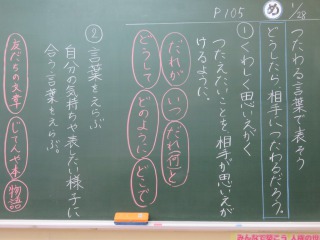 1/28
め
P105
つたわる言葉で表そう
どうしたら、相手につたわるだろう?
①くわしく思いえがく
つたえたいことを相手が思いえが
けるように。
だれが いつ だれ何と
どうして どのように どこで
②言葉をえらぶ
自分の気持ちや表したい様子に
合う言葉をえらぶ。
友だちの文章 じてんや本 物語
みんなで築こう 人権の